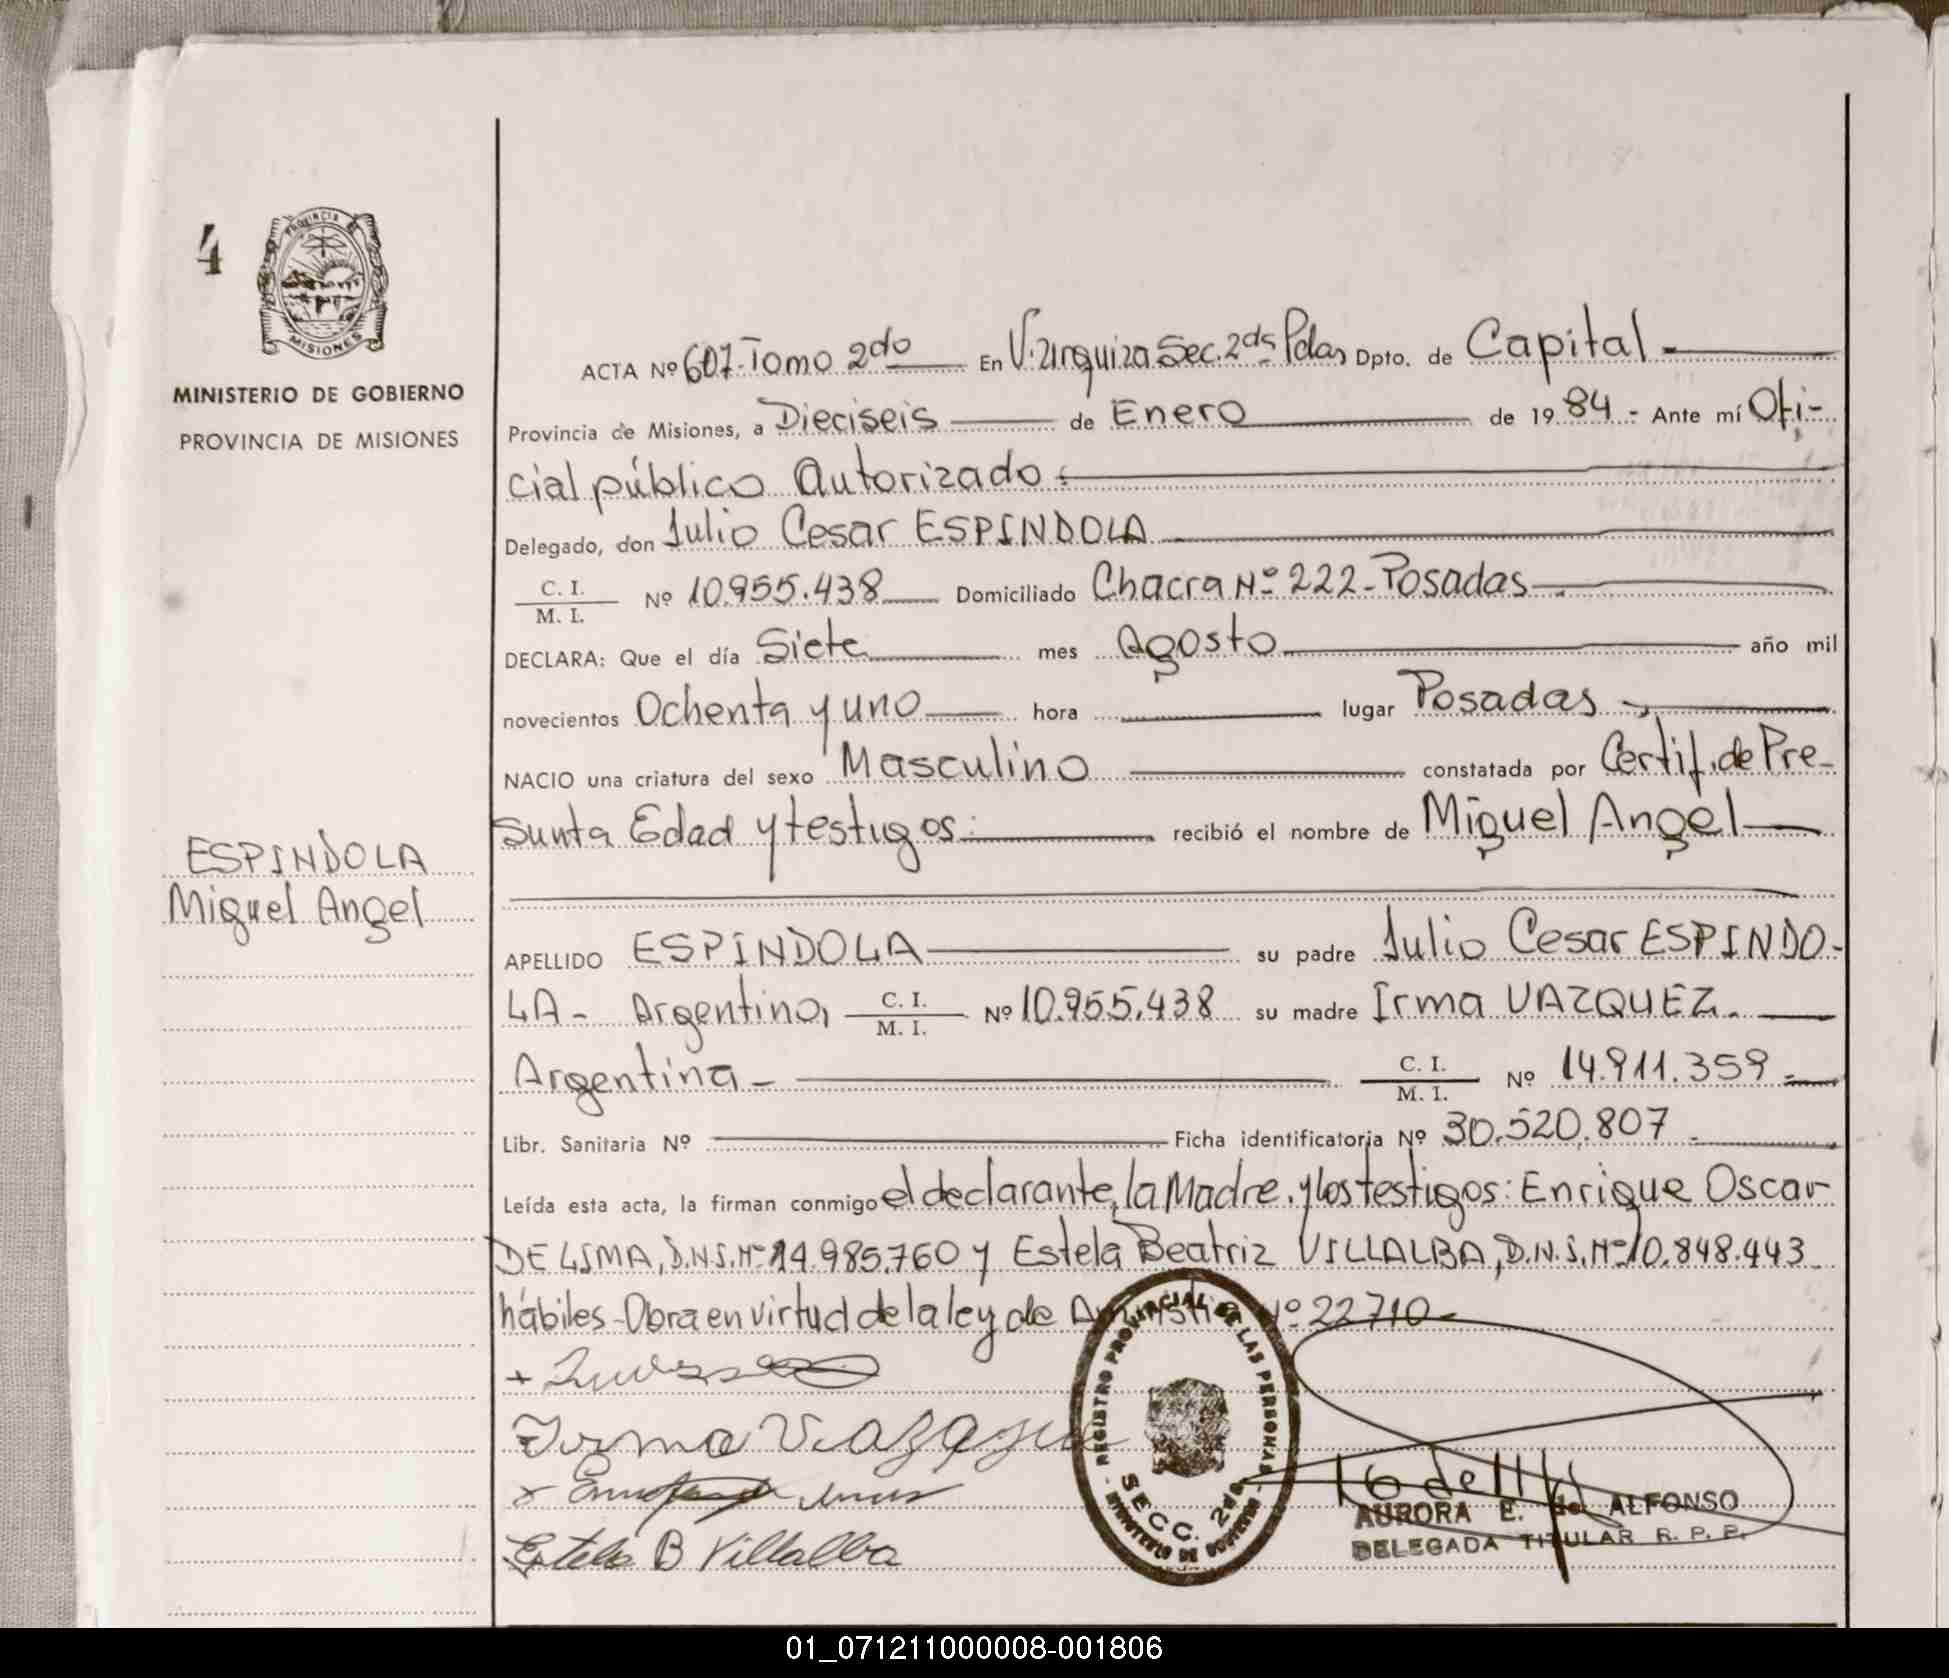 4
PROVINCIA
MISIONES
MINISTERIO DE GOBIERNO
PROVINCIA DE MISIONES
ESPINDOLA
Miguel Angel
ACTA Nº 607-Tomo 2do En V. Urquiza Sec. 2da Pdas Dpto. de Capital
Provincia de Misiones, a Dieciseis de Enero de 19 84.- Ante mí Ofi-
cial público Autorizado.
Delegado, don Julio Cesar ESPINDOLA
C. I. / M. I. Nº 10.955.438 Domiciliado Chacra Nº 222-Posadas
DECLARA: Que el día Siete mes Agosto año mil
novecientos Ochenta y uno hora lugar Posadas
NACIO una criatura del sexo Masculino constatada por Certif. de Pre-
sunta Edad y testigos.- recibió el nombre de Miguel Angel
APELLIDO ESPINDOLA su padre Julio Cesar ESPINDO-
LA- Argentino, C. I. / M. I. Nº 10.955.438 su madre Irma VAZQUEZ.
Argentina- C. I. / M. I. Nº 14.911.359
Libr. Sanitaria Nº Ficha identificatoria Nº 30.520.807
Leída esta acta, la firman conmigo el declarante, la Madre. y los testigos: Enrique Oscar
DE LIMA, D.N.I. Nº 14.985.760 y Estela Beatriz VILLALBA, D.N.I. Nº 10.848.443
hábiles-Obra en virtud de la ley de Amnistia Nº 22710-
Irma Vazque
Estela B Villalba
REGISTRO PROVINCIAL DE LAS PERSONAS
SECC. 2da
MINISTERIO DE GOBIERNO
AURORA E. de ALFONSO
DELEGADA TITULAR R. P. P.
01_071211000008-001806